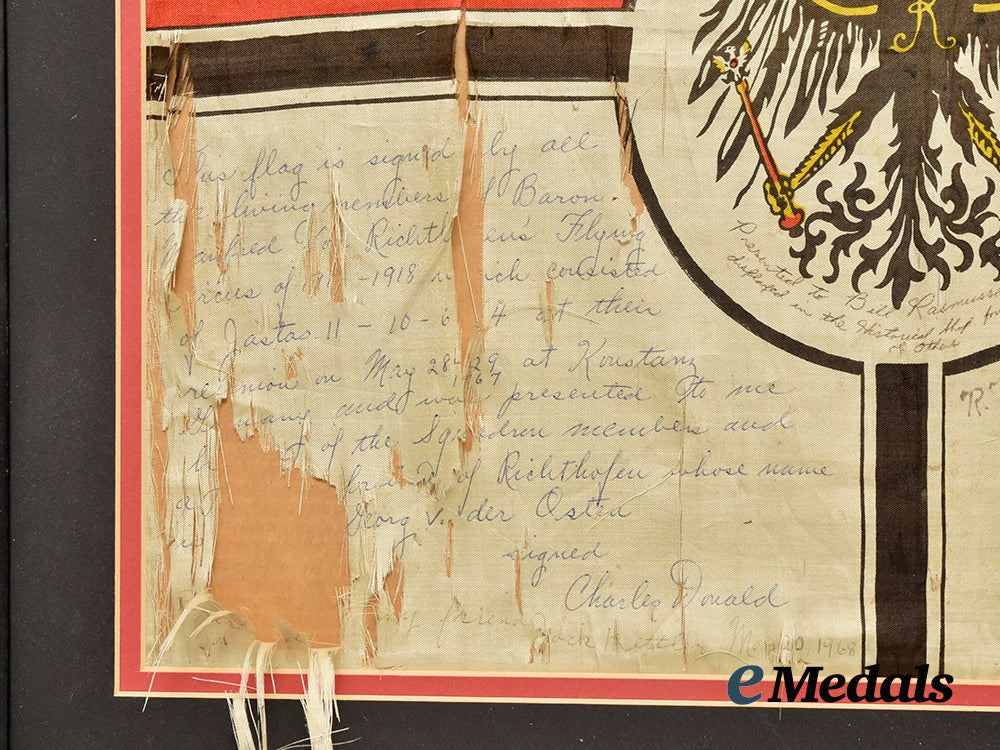 This flag is signed by all
the living members of Baron
Manfred Von Richthofen's Flying
Circus of 1917-1918 which consisted
of Jastas 11 - 10 - 6 4 at their
reunion on May 28 & 29 at Konstanz
1967
Germany and was presented to me
of the Squadron members and
friend of Richthofen whose name
Georg v. der Osten
signed
Charles Donald
my friend Jack Kettler 1968
Presented to Bill Rasmussen
displayed in the Historical Shop for
Others
K
"R."
eMedals